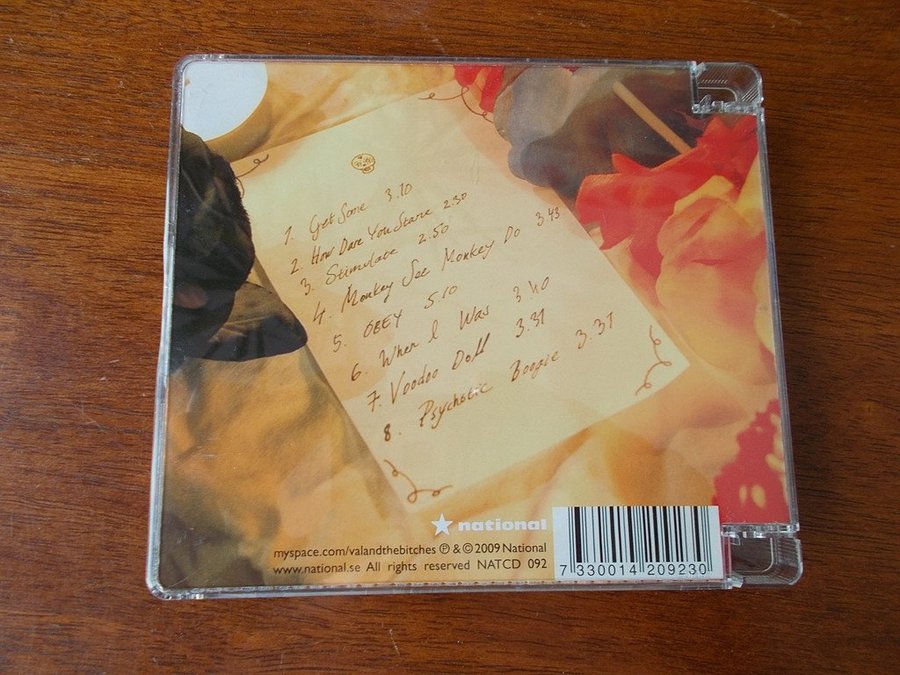 1. Get Some 3.10
2. How Dare You Stare 2.30
3. Stimulate 2.50
4. Monkey See Monkey Do 3.43
5. OBEY 5.10
6. When I Was 3.40
7. Voodoo Doll 3.31
8. Psychotic Boogie 3.31
national
myspace.com/valandthebitches ℗ & © 2009 National
www.national.se All rights reserved NATCD 092
7 330014 209230